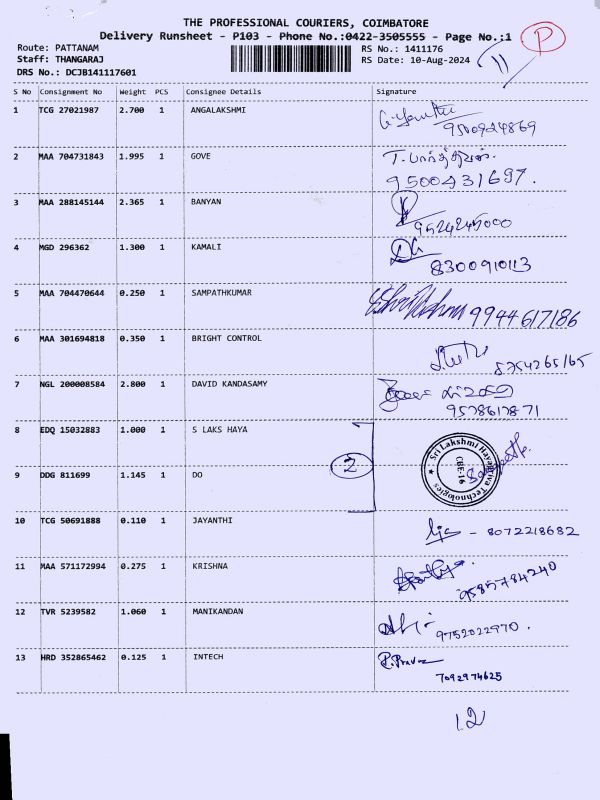 THE PROFESSIONAL COURIERS, COIMBATORE
Delivery Runsheet - P103 - Phone No.:0422-3505555 - Page No.:1
P
Route: PATTANAM RS No.: 1411176
11
Staff: THANGARAJ RS Date: 10-Aug-2024
DRS No.: DCJB141117601
S No Consignment No Weight PCS Consignee Details Signature
1 TCG 27021987 2.700 1 ANGALAKSHMI
9500924869
2 MAA 704731843 1.995 1 GOVE
9500431697.
3 MAA 288145144 2.365 1 BANYAN
9524245000
4 MGD 296362 1.300 1 KAMALI
8300910113
5 MAA 704470644 0.250 1 SAMPATHKUMAR
9944617186
6 MAA 301694818 0.350 1 BRIGHT CONTROL
8754265165
7 NGL 200008584 2.800 1 DAVID KANDASAMY
9578617871
8 EDQ 15032883 1.000 1 S LAKS HAYA
2
Sri Lakshmi Hayagriva Technologies
CBE-16
9 DDG 811699 1.145 1 DO
10 TCG 50691888 0.110 1 JAYANTHI
- 8072218682
11 MAA 571172994 0.275 1 KRISHNA
9585784240
12 TVR 5239582 1.060 1 MANIKANDAN
9752022970.
13 HRD 352865462 0.125 1 INTECH
7092974625
12